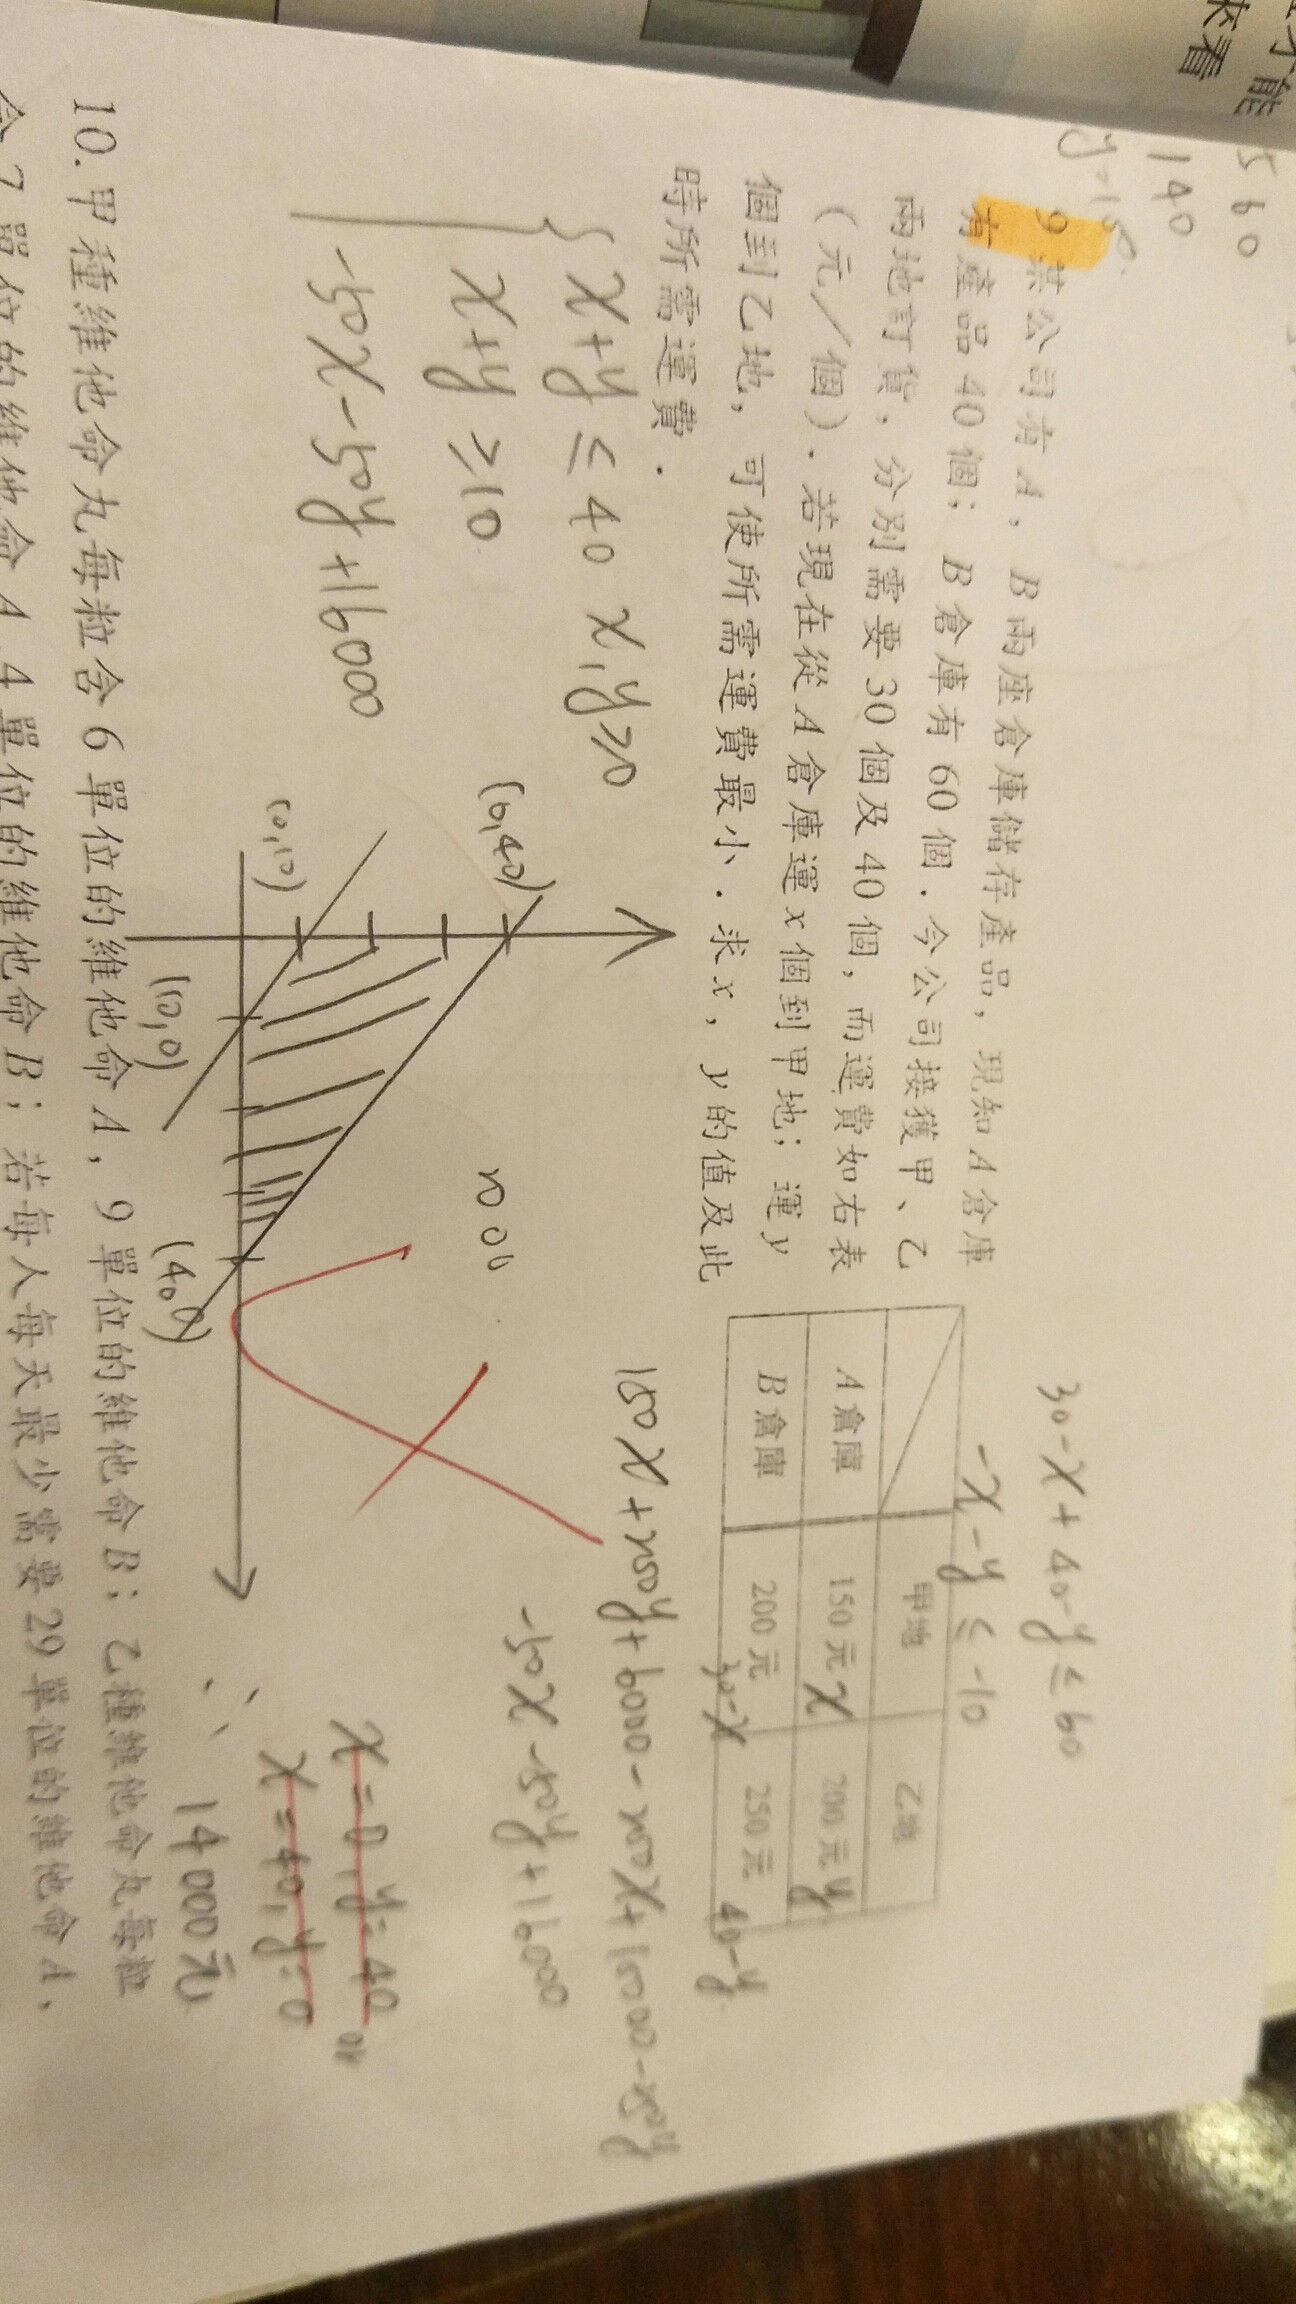 才能
來看
560
140
y=150
9 某公司有A，B兩座倉庫儲存產品，現知A倉庫
有產品40個；B倉庫有60個．今公司接獲甲、乙
兩地訂貨，分別需要30個及40個，而運費如右表
（元／個）．若現在從A倉庫運x個到甲地；運y
個到乙地，可使所需運費最小．求x，y的值及此
時所需運費．
30-x+40-y≤60
-x-y≤-10
甲地 乙地
A倉庫 150元 x 200元 y
B倉庫 200元 30-x 250元 40-y
150x+200y+6000-200x+10000-250y
-50x-50y+16000
x+y≤40 x,y≥0
x+y≥10
-50x-50y+16000
(0,40)
(0,10)
(10,0)
(40,0)
x=0,y=40 or
x=40,y=0
∴ 14000元
10. 甲種維他命丸每粒含6單位的維他命A，9單位的維他命B；乙種維他命丸每粒
含7單位的維他命A，4單位的維他命B；若每人每天最少需要29單位的維他命A，